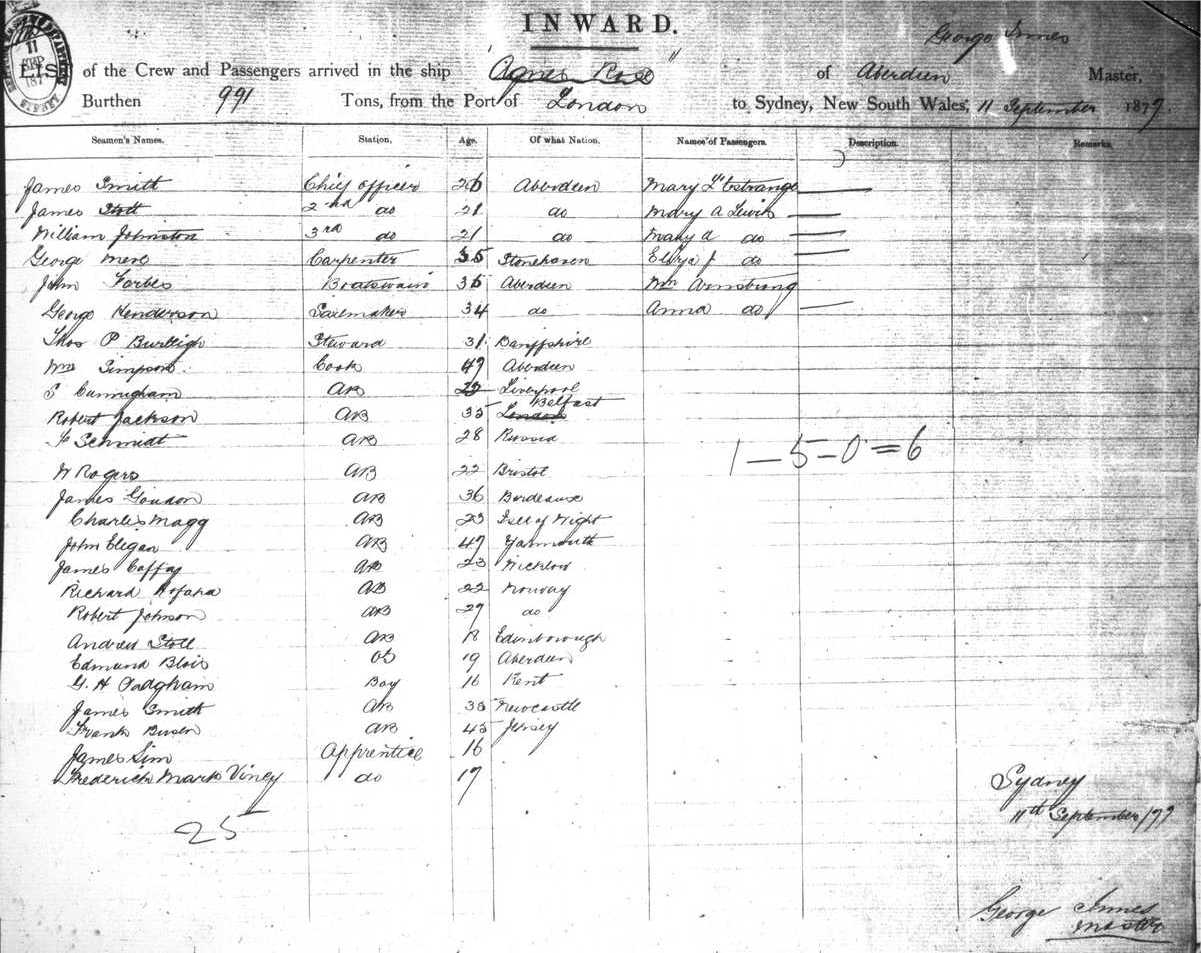 INWARD.
George Innes
of the Crew and Passengers arrived in the ship "Agnes Rose" of Aberdeen Master,
Burthen 991 Tons, from the Port of London to Sydney, New South Wales, 11 September 1877.
Seamen's Names. Station, Age. Of what Nation. Names of Passengers. Description. Remarks.
James Smith Chief Officer 26 Aberdeen Mary L'Estrange
James Stott 2nd do 21 do Mary A Lewis
William Johnston 3rd do 21 do Mary A do
George Carpenter 35 Stonehaven Eliza J do
John Forbes Boatswain 35 Aberdeen Wm Armstrong
George Henderson Sailmaker 34 do Anna do
Thos P Burleigh Steward 31 Banffshire
Wm Simpson Cook 47 Aberdeen
S Cunnigham AB 22 Liverpool
Belfast
Robert Jackson AB 35 London
Schmidt AB 28 Russia
1 - 5 - 0 = 6
W Rogers AB 22 Bristol
James AB 36 Bordeaux
Charles Magg AB 23 Isle of Wight
John Eligan AB 47 Yarmouth
James Caffay AB 23 Wicklow
Richard AB 22 Norway
Robert Johnson AB 27 do
Andrew Stott AB 18 Edinborough
Edmund Blois OS 19 Aberdeen
G. H Padgham Boy 16 Kent
James Smith AB 35 Newcastle
Frank AB 45 Jersey
James Sim Apprentice 16
Frederick Mark Viney do 17
25
Sydney
11th September /77
George Innes
Master